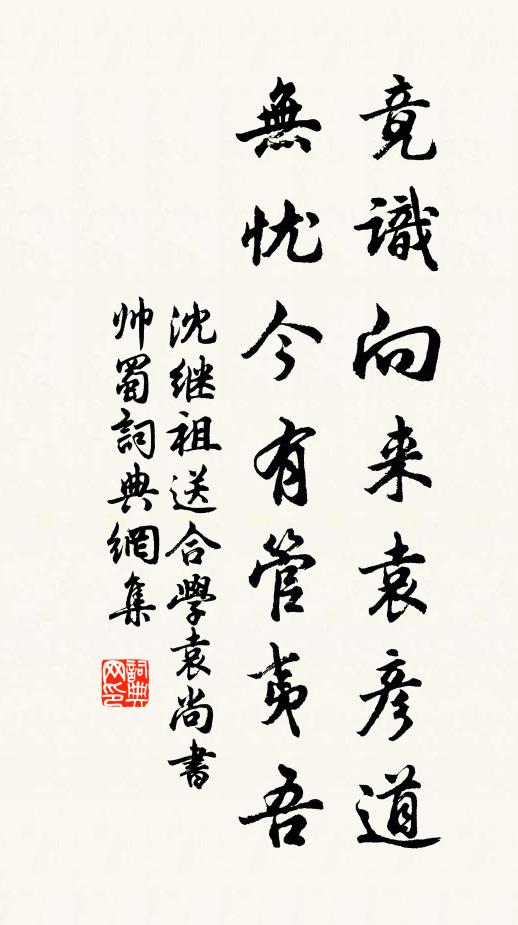 竟識向来袁彦道
無忧今有管夷吾
沈继祖送合學袁尚書
帅蜀詞典網集
詞典网印